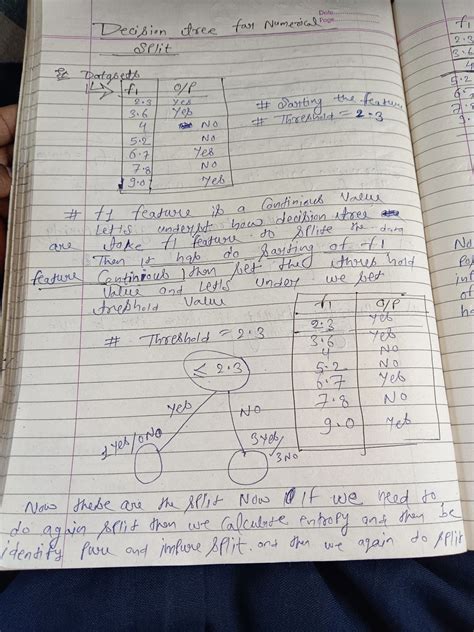 Date
Page
Decision tree for Numerical
Split
Ex Datasets
f1 O/P
2.3 Yes
3.6 Yes
4 NO
5.2 NO
6.7 Yes
7.8 NO
9.0 Yes
# Sorting the feature
# Threshold = 2.3
# f1 feature is a Continious Value
Let's underst how decision tree
are take f1 feature to Splite the data
Then it has do Sorting of f1
feature Continious then set the thres hold
Value and Let's under we set
treshold Value
# Threshold = 2.3
≤ 2.3
Yes NO
1 Yes/0NO 3Yes/
3NO
f1 O/P
2.3 Yes
3.6 Yes
4 NO
5.2 NO
6.7 Yes
7.8 NO
9.0 Yes
Now these are the split Now If we need to
do again split then we calculate entropy and then be
identify Pure and impure Split. and then we again do split
f1
2.3
3.6
4